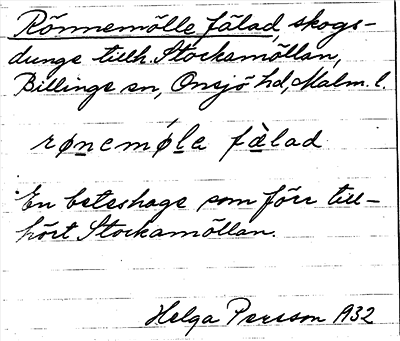 Rönnemölle fälad, skogs-
dunge tillh. Stockamöllan,
Billinge sn, Onsjö hd, Malm. l.
rø̱nemǿ̱le fä̱lad
En beteshage som förr till-
hört Stockamöllan.
Helga Persson A32